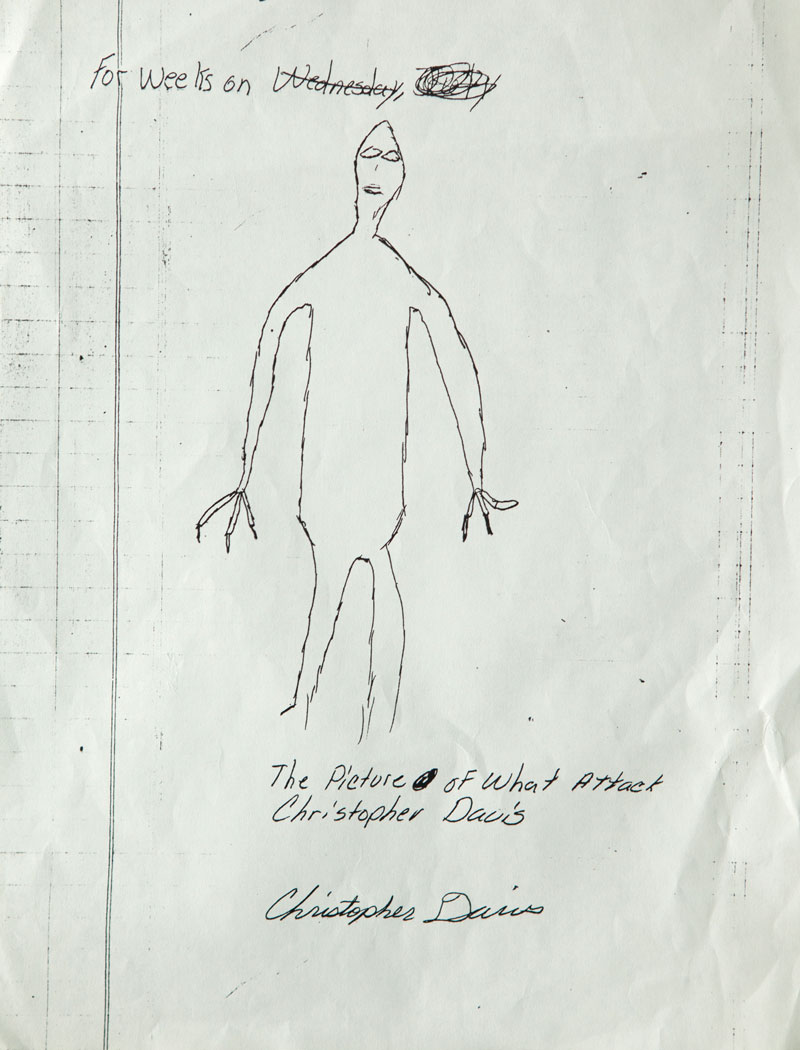 For Weeks on Wednesday,
The Picture of What Attack
Christopher Davis
Christopher Davis